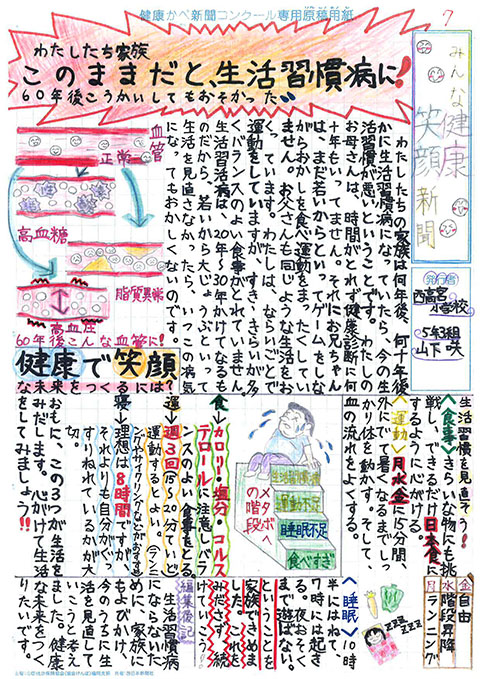 健康かべ新聞コンクール専用原稿用紙
7
みんな
健康
笑顔
新聞
発行者
西高宮
小学校
5年3組
山下 咲
わたしたち家族
このままだと、生活習慣病に!
60年後こうかいしてもおそかった
わたしたちの家族は何年後、何十年後
かに生活習慣病になっていたら、今の生
活習慣が悪いということです。わたしの
お母さんは、時間がとれず健康診断に何
十年もいってません。それにお兄ちゃん
は、まだ若いからといってゲームをしな
がらおかしを食べ運動をまったくしてい
ません。お父さんも同じような生活をお
くっています。わたしは、ならいごとで
運動をしていますが、すききらいが多
くバランスのよい食事がとれていません。
生活習慣病は、20年~30年かけてなるも
のだから、若いから大じょうぶといって
生活を見直さなかったら、いつこの病気
になってもおかしくないのです。
血管
正常
高血糖
脂質異常
高血圧
60年後こんな血管に!
健康で笑顔?
生活習慣を見直そう!
<食事>きらいな物にも挑
戦し、できるだけ日本食に
するように心がける。
<運動>月水金に15分間、
外にでて暑くなるまでしっ
かり体を動かす。そして、
血の流れをよくする。
メタボへ
の階段
生活習慣病
運動不足
睡眠不足
食べすぎ
食→カロリー・塩分・コルス
テロールに注意しバラ
ンスのよい食事をとる
運→週3回15~20分いど
運動するとよい。(ラン
ニングやサイクリングなどがおすすめ)
寝→理想は8時間ですが、
それよりも自分がぐっ
すりねれているかが大
切。
おもに、この3つが生活を
みだします。心がけて生活
なをしてみましょう!!
金 自由
水 階段昇降
月 ランニング
<睡眠>10時
半にはねて、
7時には起き
る。夜おそく
まで遊ばない。
ということを
家族できめま
した。これを
みださず、続
けていこう。
編集後記
生活習慣病
にならないた
めに、家族に
もよびかけ、
今のうちに生
活を見直して
いこうと考え
ました。健康
な未来をつく
りたいです。
zzz
zzz